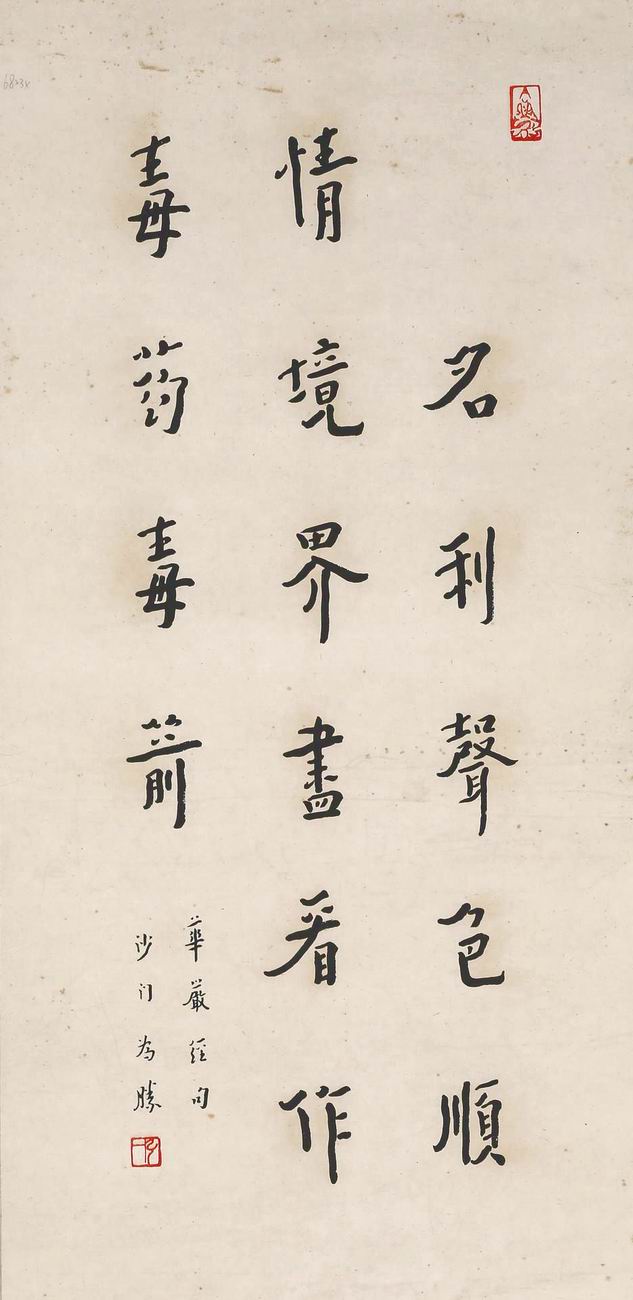 名利聲色順
情境界盡看作
毒药毒箭
華嚴經句
沙门為勝